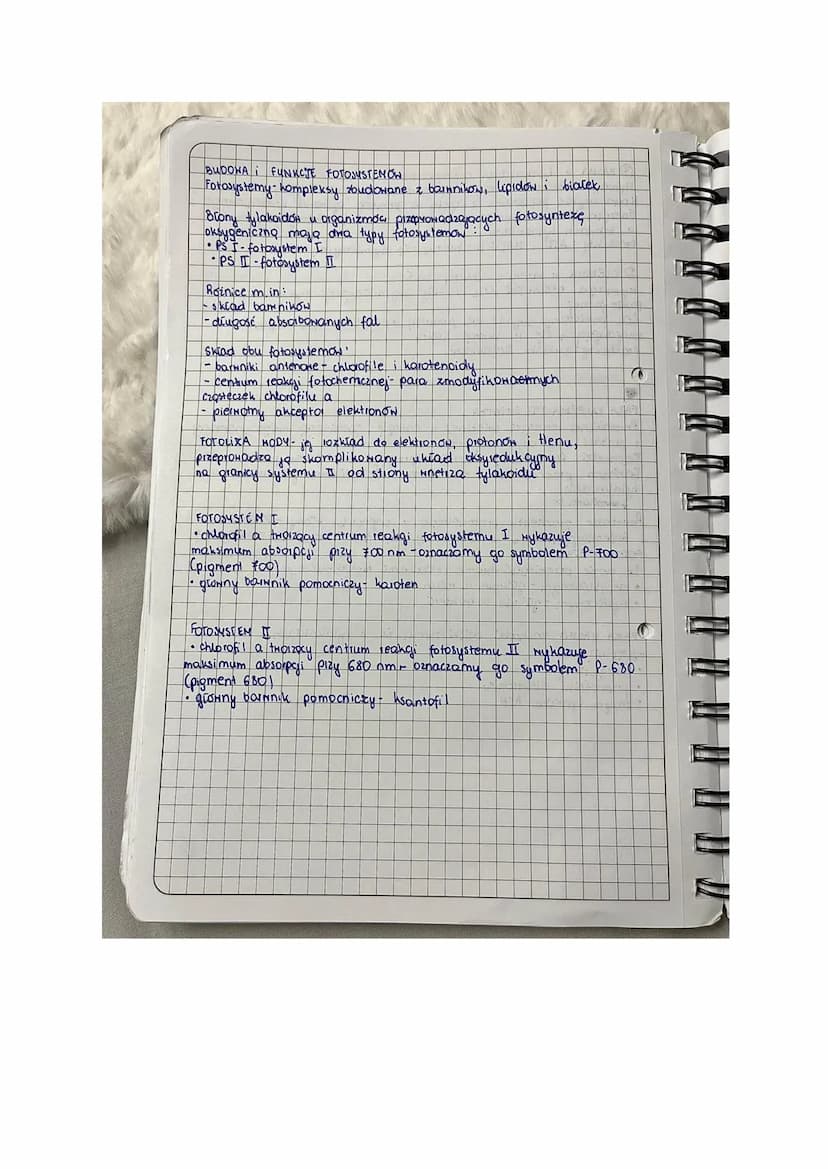 BUDOWA i FUNKCJE FOTOSYSTEMÓW
Fotosystemy- kompleksy zbudowane z barwników, lipidów i białek
Błony tylakoidów u organizmów przeprowadzających fotosyntezę
oksygeniczną mają dwa typy fotosystemów:
• PS I - fotosystem I
• PS II - fotosystem II
Różnice m.in:
- skład barwników
- długość absorbowanych fal
Skład obu fotosystemów:
- barwniki antenowe - chlorofile i karotenoidy
- centrum reakcji fotochemicznej- para zmodyfikowanych
cząsteczek chlorofilu a
- pierwotny akceptor elektronów
FOTOLIZA WODY- jej rozkład do elektronów, protonów i tlenu,
przeprowadza ją skomplikowany układ oksyredukcyjny
na granicy systemu II od strony wnętrza tylakoidu
FOTOSYSTEM I
• chlorofil a tworzący centrum reakcji fotosystemu I wykazuje
maksimum absorpcji przy 700 nm - oznaczamy go symbolem P-700
(pigment 700)
• główny barwnik pomocniczy- karoten
FOTOSYSTEM II
• chlorofil a tworzący centrum reakcji fotosystemu II wykazuje
maksimum absorpcji przy 680 nm - oznaczamy go symbolem P-680
(pigment 680)
• główny barwnik pomocniczy- ksantofil